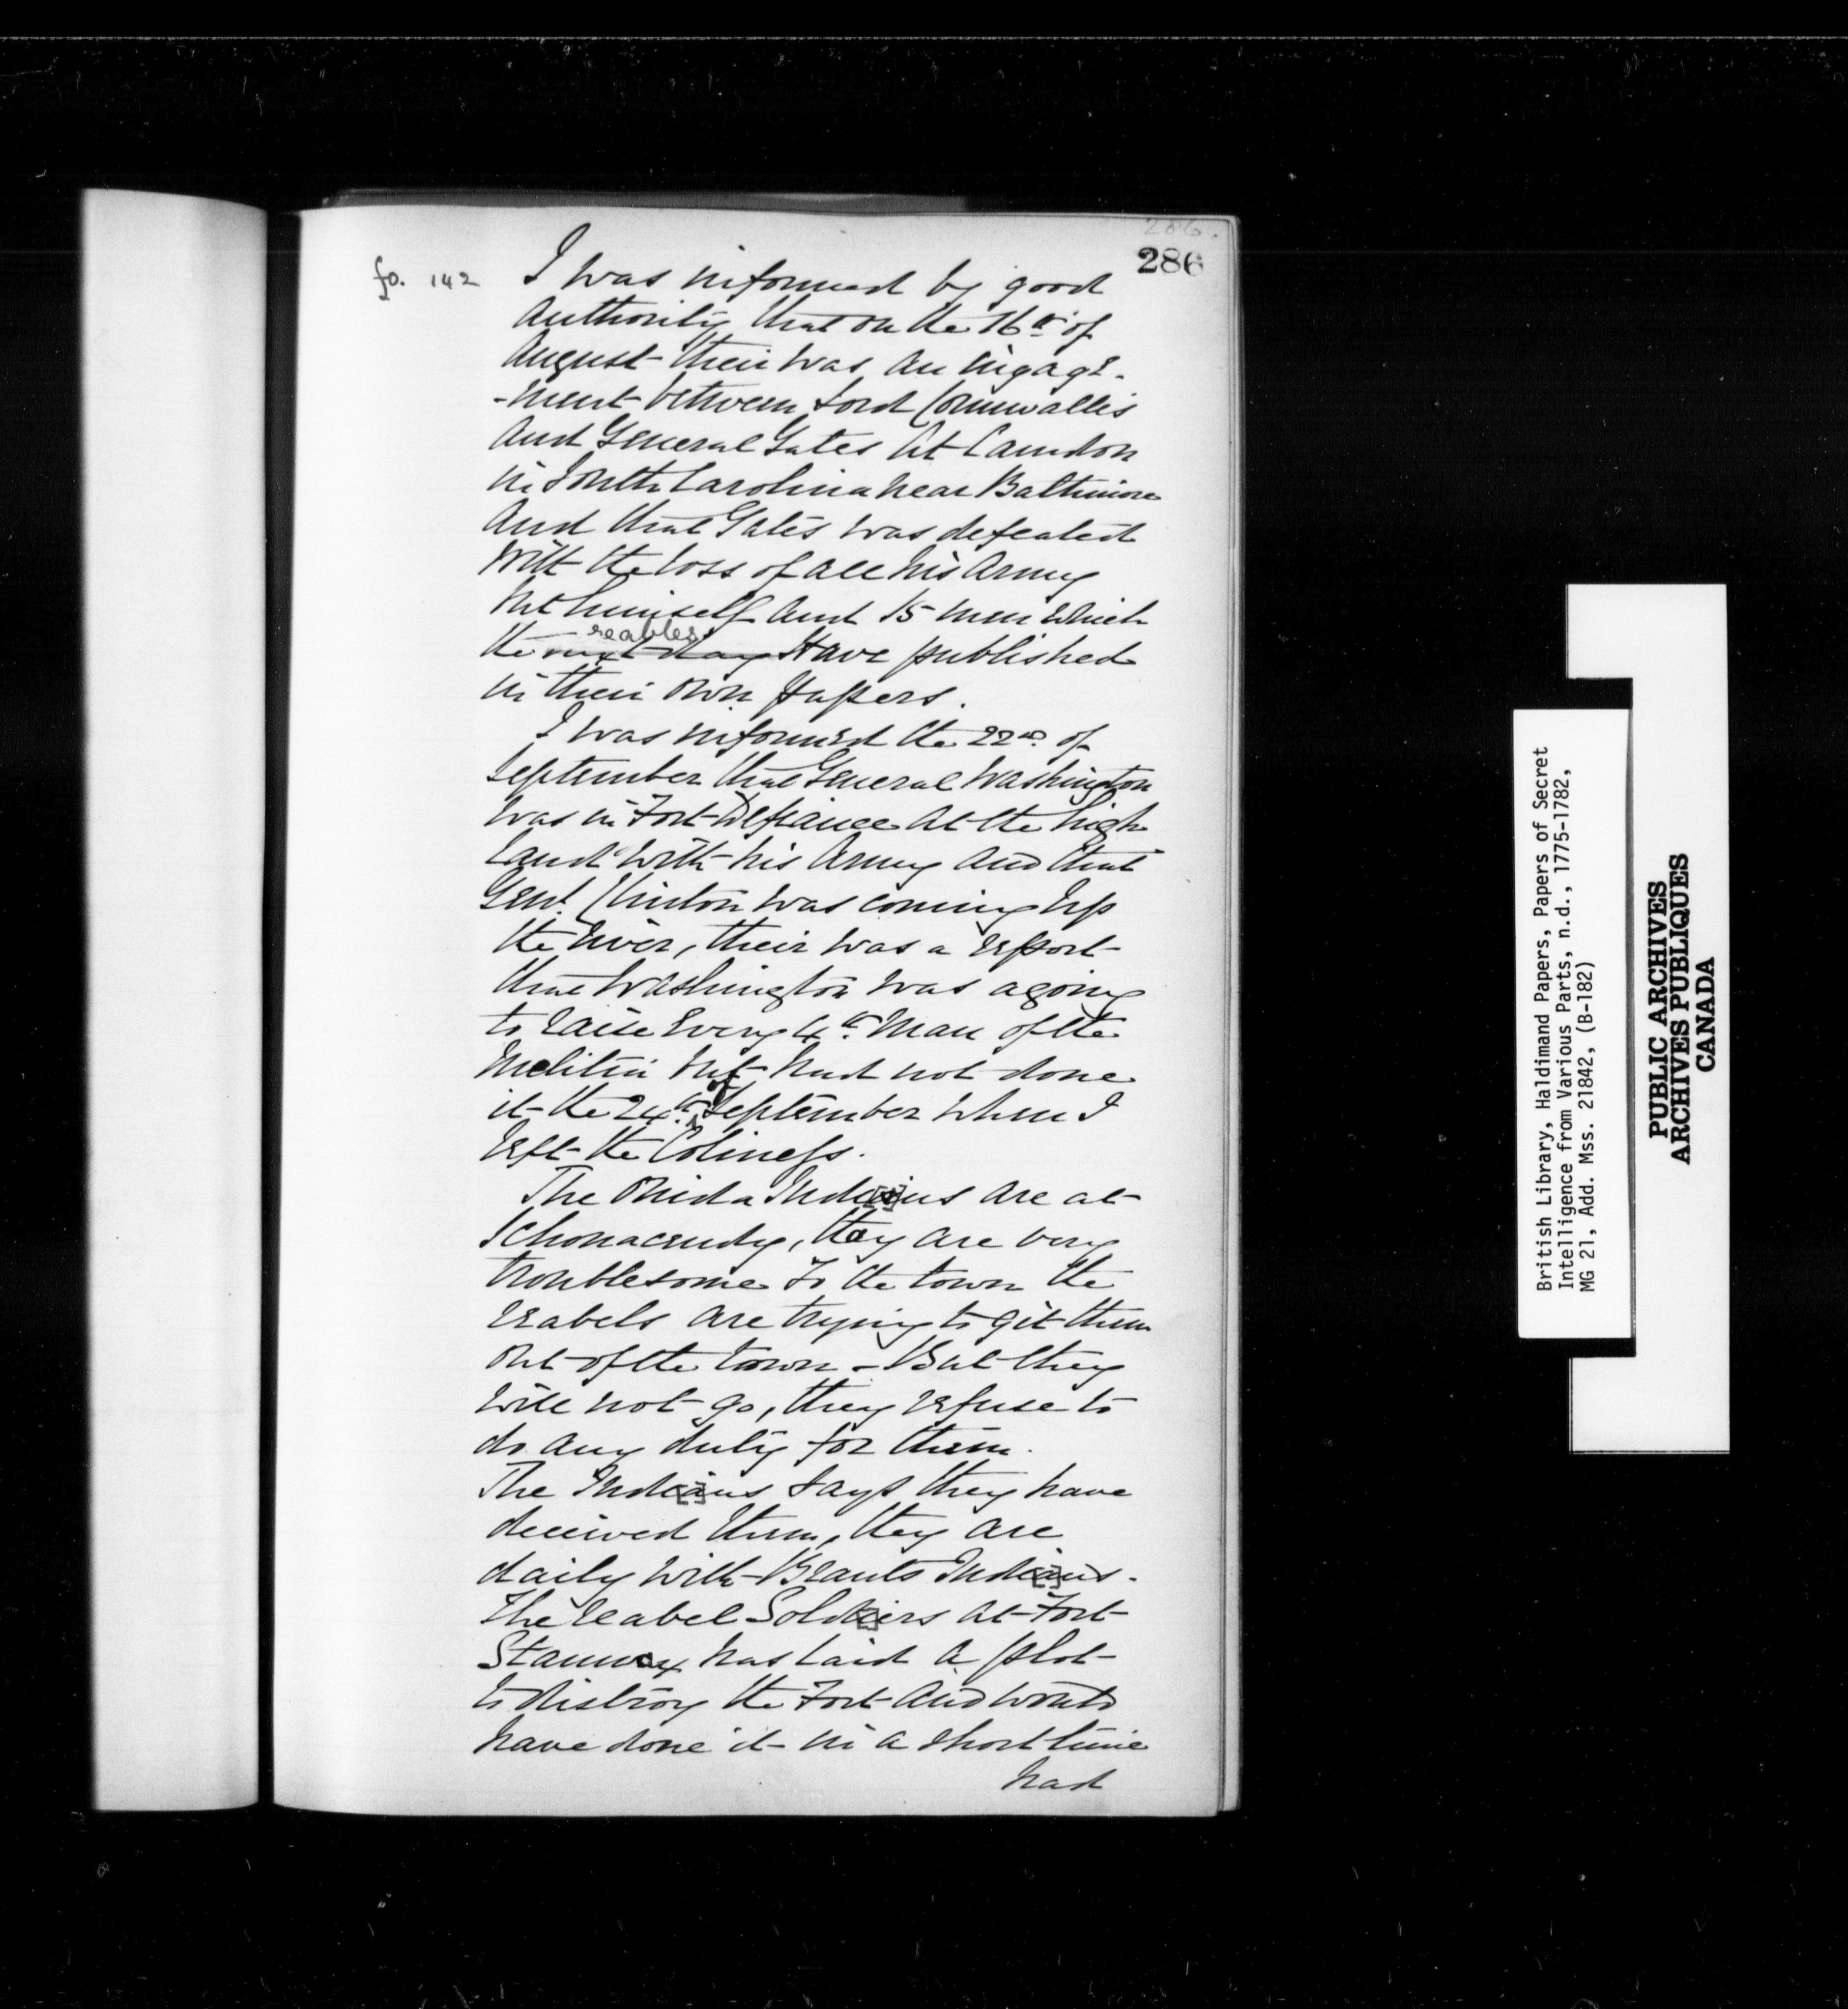 286.
286
fo. 142
I was informed by good
Authority that on the 16th of
August their was an ingage-
-ment between Lord Cornwallis
And General Gates At Camdon
in South Carolina near Baltimore
And that Gates was defeated
With the loss of all his Army
but himself and 15 men which
the next day reables Have published
in their own Papers.
I was informed the 22nd of
September that General Washington
was in Fort Defiance At the high
Land with his Army and that
Genl. Clinton was coming up
the River, their was a report
that Washington was agoing
to raise Every 4th Man of the
Melitia but had not done
it the 24th of September when I
left the Coliness.
The Onida Indians are at
Schonacendy, they are very
troublesome to the town the
reabels are trying to git them
out of the town - But they
will not go, they refuse to
do any duty for them.
The Indians says they have
deceived them, they are
daily with Brants Indians.
The reabel Soldiers at Fort
Stanwex has laid a plot
to distroy the Fort and would
have done it in a short time
had
British Library, Haldimand Papers, Papers of Secret
Intelligence from Various Parts, n.d., 1775-1782,
MG 21, Add. Mss. 21842, (B-182)
PUBLIC ARCHIVES
ARCHIVES PUBLIQUES
CANADA